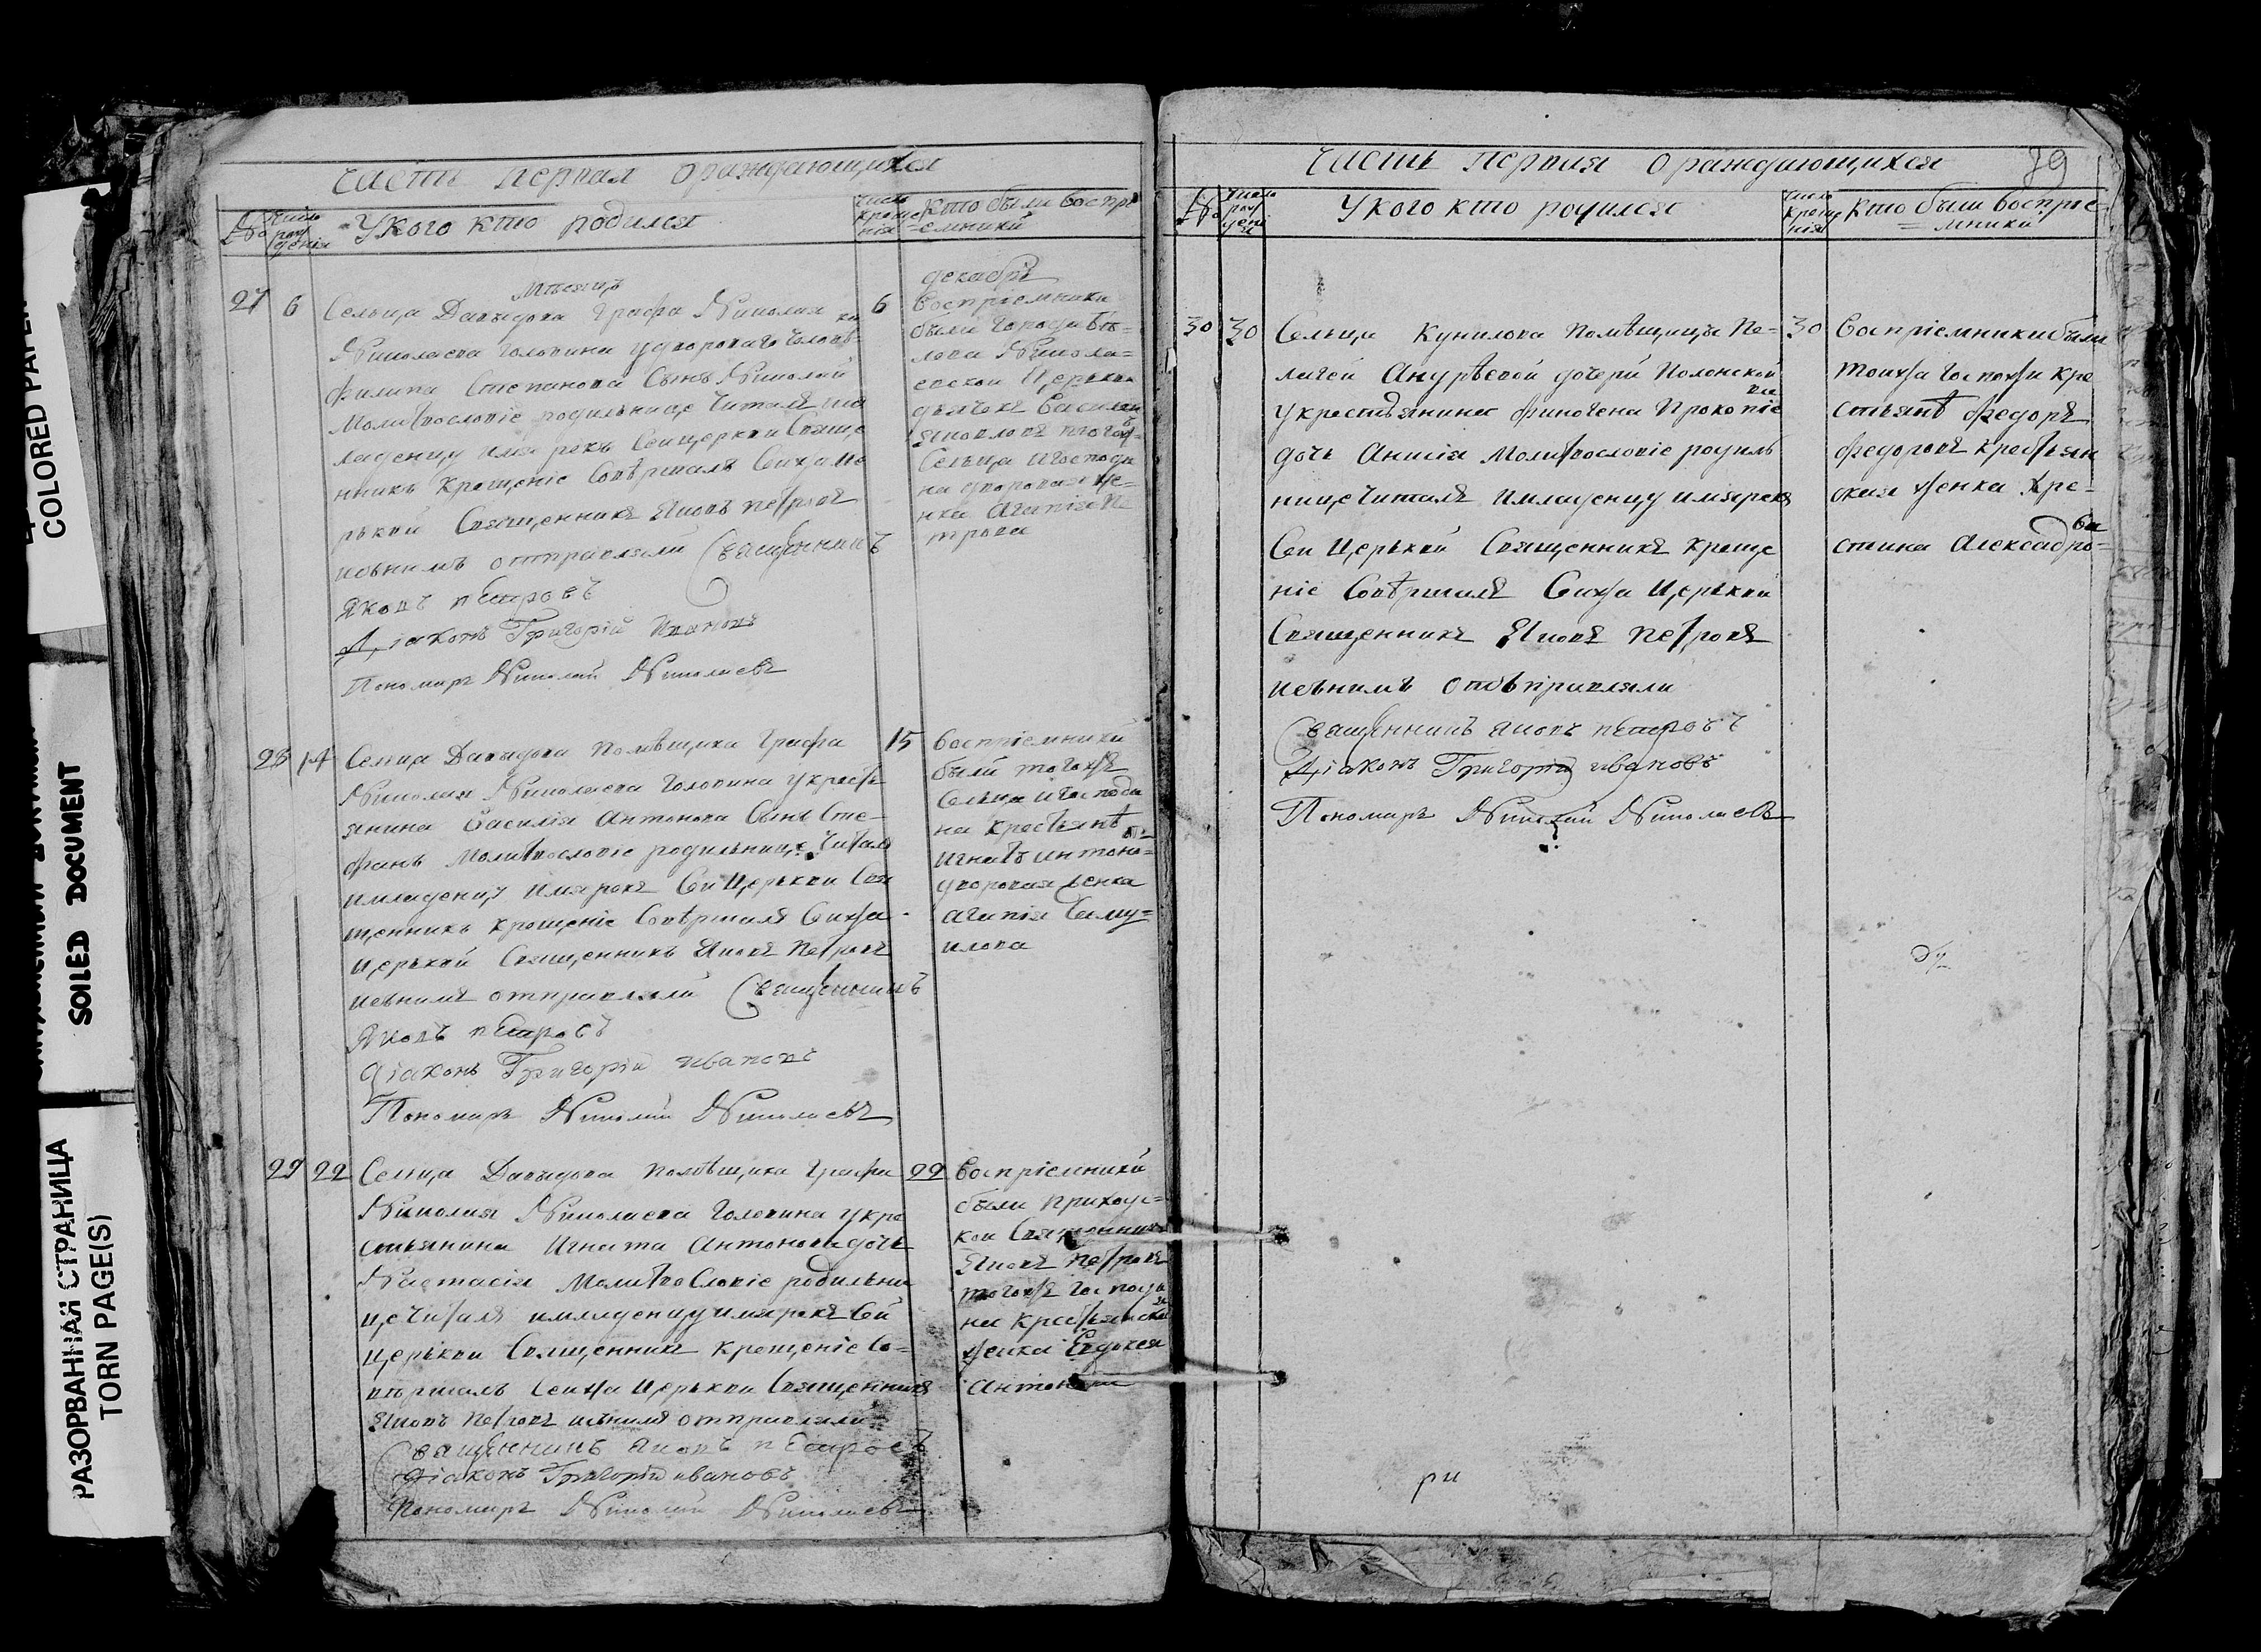 COLORED PAPER
SOILED DOCUMENT
РАЗОРВАННАЯ СТРАНИЦА
TORN PAGE(S)
Часть первая ораждающихся
№
число рож денія
У кого кто родился
число креще нія
кто были воспрі
=емники
Мѣсяцъ декабрь
27 6
Сельца Давыдова Графа Николая
Николаева Головина у двороваго человѣ= ка
Филипа Степанова Сынъ Николай
Молитвословіе родильнице Читалъ и мла
ладенцу имя рекъ Сей церькви Свяще
нникъ Крещеніе Совѣршалъ Сейжа це
рькви Священникъ Яковъ Петровъ
исънимъ отправляли Священникъ
Яковъ Петровъ
Діаконъ Григорій Ивановъ
Пономарь Николай Николаевъ
6
Воспріемники
были города Бѣ=
лева Никола=
евской Церькви
дьячекъ Василий
Яковлевъ тогожъ
Сельца и Господи
на дворовая же=
нка Агапія Пе
трова
28 14
Селца Давыдова Помѣщика Графа
Николая Николаева Головина у кресть
янина Василія Антонова Сынъ Сте=
фанъ Молитвословіе родильнице Читалъ
имладенцу Имярекъ Сей Церькви Свя
щенникъ крещеніе Совѣршалъ Сейжа
церькви Священникъ Яковъ Петровъ
исънимъ отправляли Священникъ
Яковъ Петровъ
Діаконъ Григорій Ивановъ
Пономарь Николай Николаевъ
15
Воспріемники
были тогожъ
Сельца и Господи
на крестьянѣ
Игнатъ Антоно= въ
дворовая женка
Агапія Саму=
илова
29 22
Селца Давыдова Помѣщика Графа
Николая Николаева Головина у кре
стьянина Игната Антонова дочь
Настасія Молитвословіе родильни
це Читалъ имладенцу имярекъ Сей
церькви Священникъ крещеніе Со=
вѣршалъ Сейжа Церькви Священникъ
Яковъ Петровъ исънимъ отправляли
Священникъ Яковъ Петровъ
Діаконъ Григорій Ивановъ
Пономарь Николай Николаевъ
22
Воспріемники
были приходс=
кой Священникъ
Яковъ Петровъ
тогожъ Господи
на крестьянская
женка Евдокея
Антонова
Часть первая ораждающихся
79
№
число рож дені я
У кого кто родился
число креще нія
кто были воспріе=
=мники
30 30
Сельца Кунилова Помѣщицы Пе=
лагеи Андрѣевой дочери Полонской
у крестьянина Финогена Прокопіе ва
дочь Анисія Молитвословіе родиль
нице Читалъ имладенцу имярекъ
Сей Церькви Священникъ креще
ніе Совѣршалъ Сейжа Церькви
Священникъ Яковъ Петровъ
исънимъ отъправляли
Священникъ Яковъ Петровъ
Діаконъ Григорій Ивановъ
Пономарь Николай Николаевъ
30
Воспріемники были
тоижа Госпожи кре
стьянѣ Федоръ
Федоровъ крестьян
ская женка Хре=
стина Алексадро= ва
ри